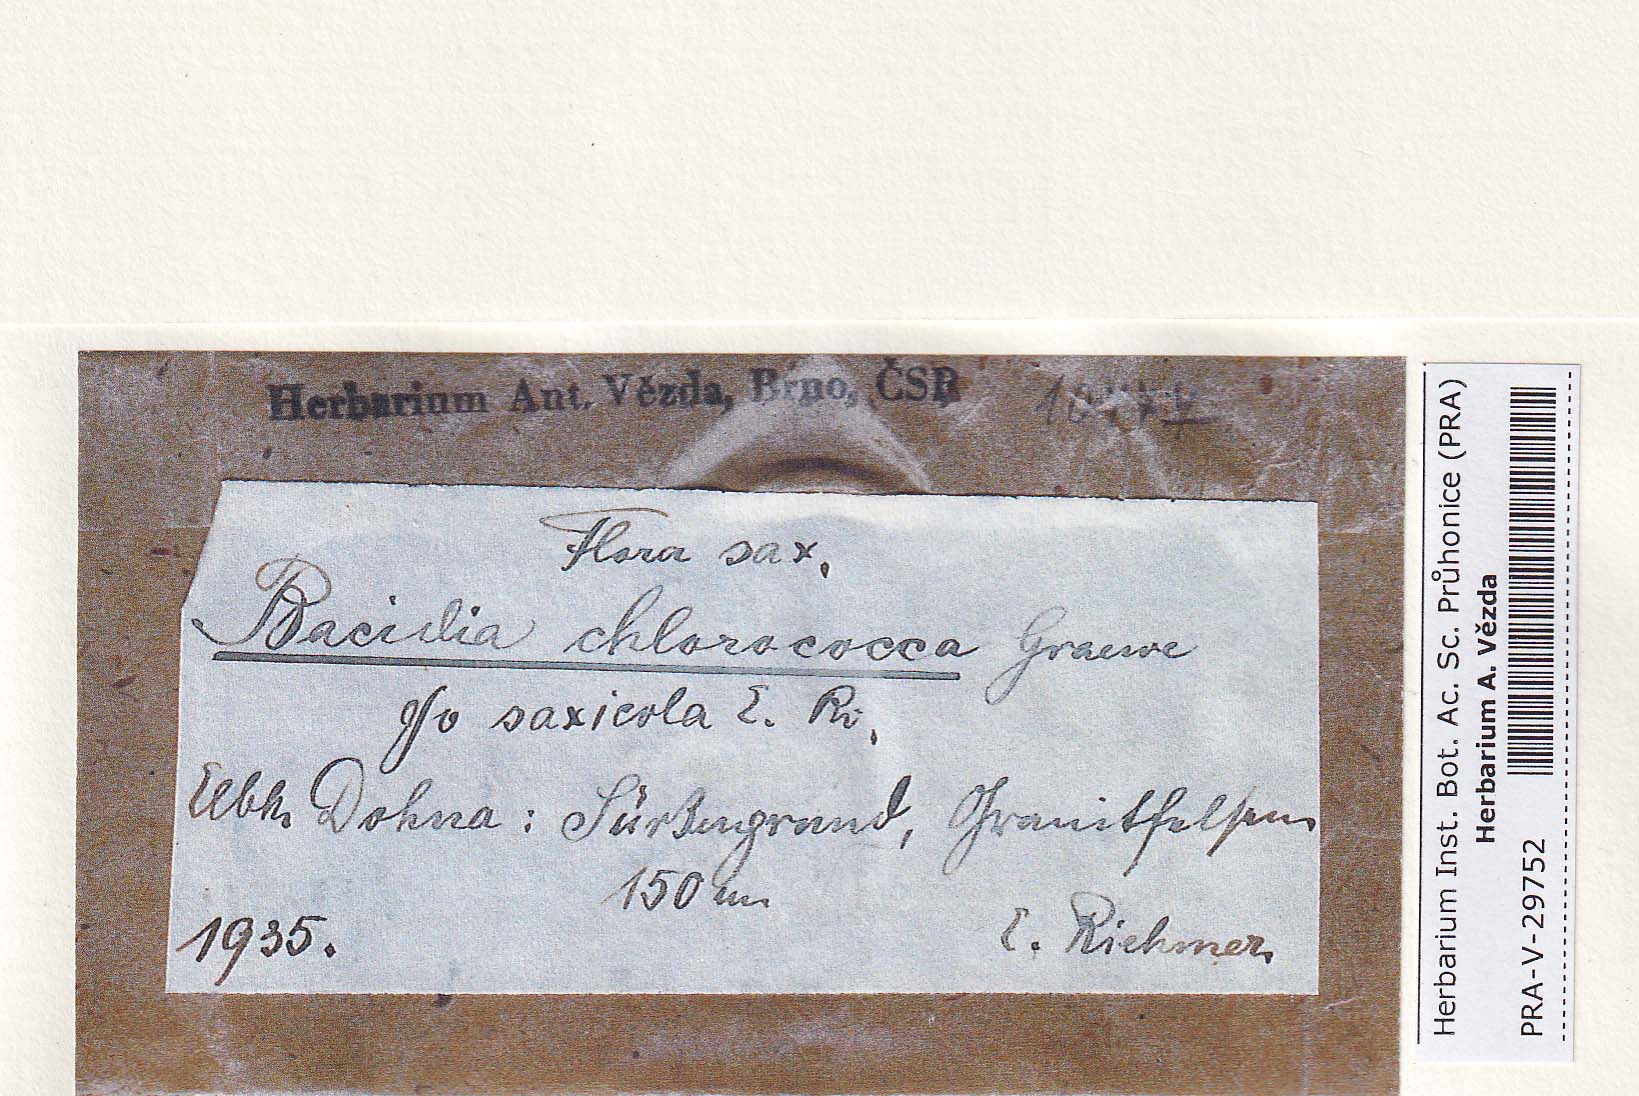 Herbarium Ant. Vězda, Brno, ČSR
Flora sax.
Bacidia chlorococca Graewe
f/o saxicola E. Ri.
Elbh. Dohna: Sürßengrund, Granitfelsen
150 m
1935.
E. Richmer
Herbarium Inst. Bot. Ac. Sc. Průhonice (PRA)
Herbarium A. Vězda
PRA-V-29752